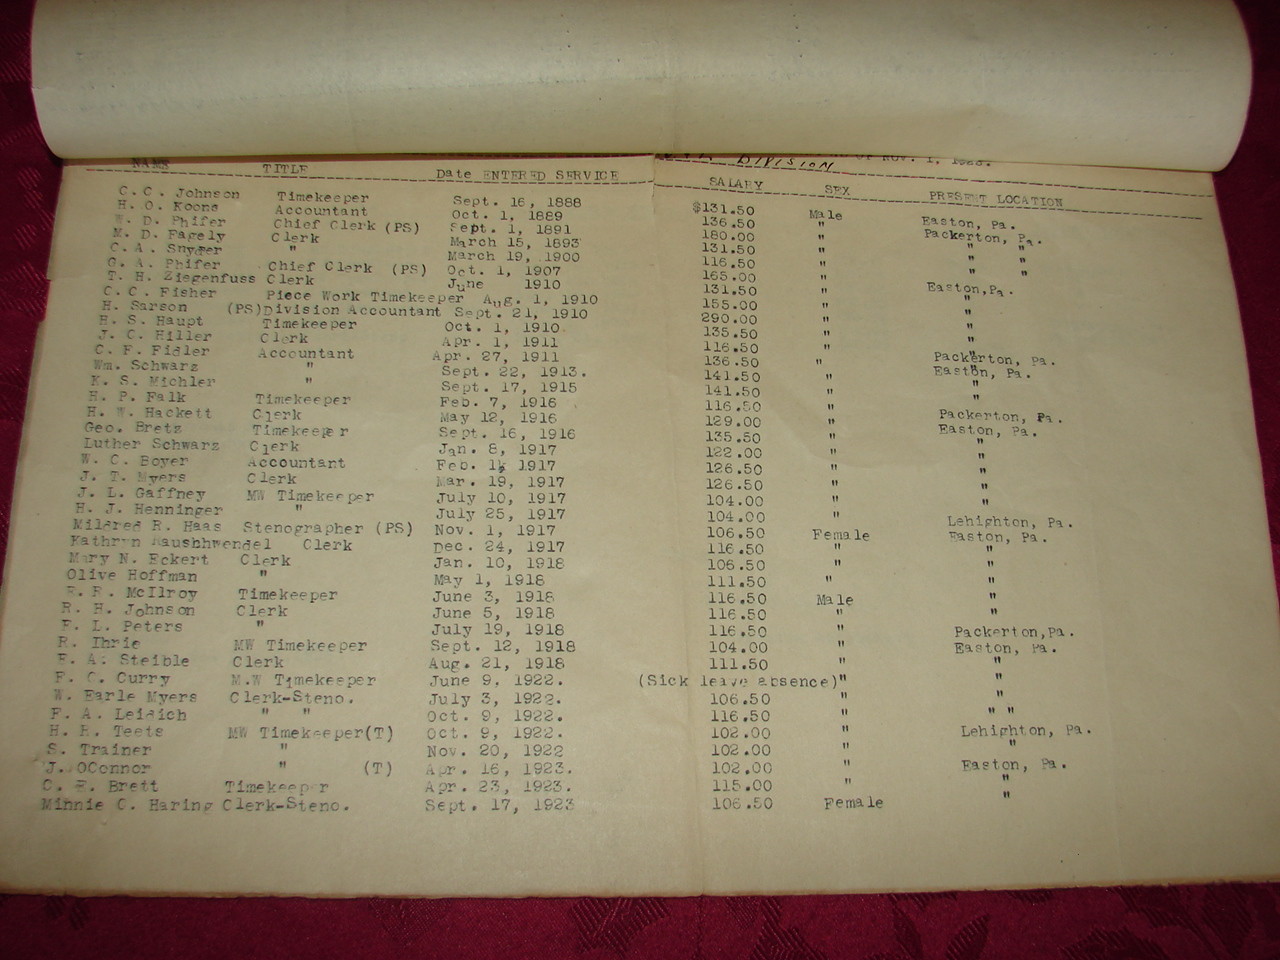 DIVISION OF NOV. 1,
NAME TITLE Date ENTERED SERVICE SALARY SEX PRESENT LOCATION
C. C. Johnson Timekeeper Sept. 16, 1888 $131.50 Male Easton, Pa.
H. O. Koons Accountant Oct. 1, 1889 136.50 " Packerton, Pa.
W. D. Phifer Chief Clerk (PS) Sept. 1, 1891 180.00 " " "
M. D. Fagely Clerk March 15, 1893 131.50 " " "
C. A. Snyder " March 19, 1900 116.50 " " "
G. A. Phifer Chief Clerk (PS) Oct. 1, 1907 165.00 " Easton,Pa.
T. H. Ziegenfuss Clerk June 1910 131.50 " "
C. C. Fisher Piece Work Timekeeper Aug. 1, 1910 155.00 " "
H. Sarson (PS)Division Accountant Sept. 21, 1910 290.00 " "
H. S. Haupt Timekeeper Oct. 1, 1910 135.50 " "
J. C. Hiller Clerk Apr. 1, 1911 116.50 " "
C. F. Fidler Accountant Apr. 27, 1911 136.50 " Packerton, Pa.
Wm. Schwarz " Sept. 22, 1913. 141.50 " Easton, Pa.
K. S. Michler " Sept. 17, 1915 141.50 " "
H. P. Falk Timekeeper Feb. 7, 1916 116.50 " "
H. W. Hackett Clerk May 12, 1916 129.00 " Packerton, Pa.
Geo. Bretz Timekeeper Sept. 16, 1916 135.50 " Easton, Pa.
Luther Schwarz Clerk Jan. 8, 1917 122.00 " "
W. C. Boyer Accountant Feb. 1917 126.50 " "
J. T. Myers Clerk Mar. 19, 1917 126.50 " "
J. L. Gaffney MW Timekeeper July 10, 1917 104.00 " "
H. J. Henninger " July 25, 1917 104.00 " Lehighton, Pa.
Mildred R. Haas Stenographer (PS) Nov. 1, 1917 106.50 Female Easton, Pa.
Kathryn Clerk Dec. 24, 1917 116.50 " "
Mary N. Eckert Clerk Jan. 10, 1918 106.50 " "
Olive Hoffman " May 1, 1918 111.50 " "
McIlroy Timekeeper June 3, 1918 116.50 Male "
R. H. Johnson Clerk June 5, 1918 116.50 " "
F. L. Peters " July 19, 1918 116.50 " Packerton,Pa.
R. Ihrie MW Timekeeper Sept. 12, 1918 104.00 " Easton, Pa.
F. A. Steible Clerk Aug. 21, 1918 111.50 " "
F. C. Curry M.W Timekeeper June 9, 1922. (Sick leave absence)" "
W. Earle Myers Clerk-Steno. July 3, 1922. 106.50 " "
F. A. Leidich " " Oct. 9, 1922. 116.50 " " "
H. R. Teets MW Timekeeper(T) Oct. 9, 1922. 102.00 " Lehighton, Pa.
S. Trainer " Nov. 20, 1922 102.00 " "
J. OConnor " (T) Apr. 16, 1923. 102.00 " Easton, Pa.
C. E. Brett Timekeeper Apr. 23, 1923. 115.00 " "
Minnie C. Haring Clerk-Steno. Sept. 17, 1923 106.50 Female "